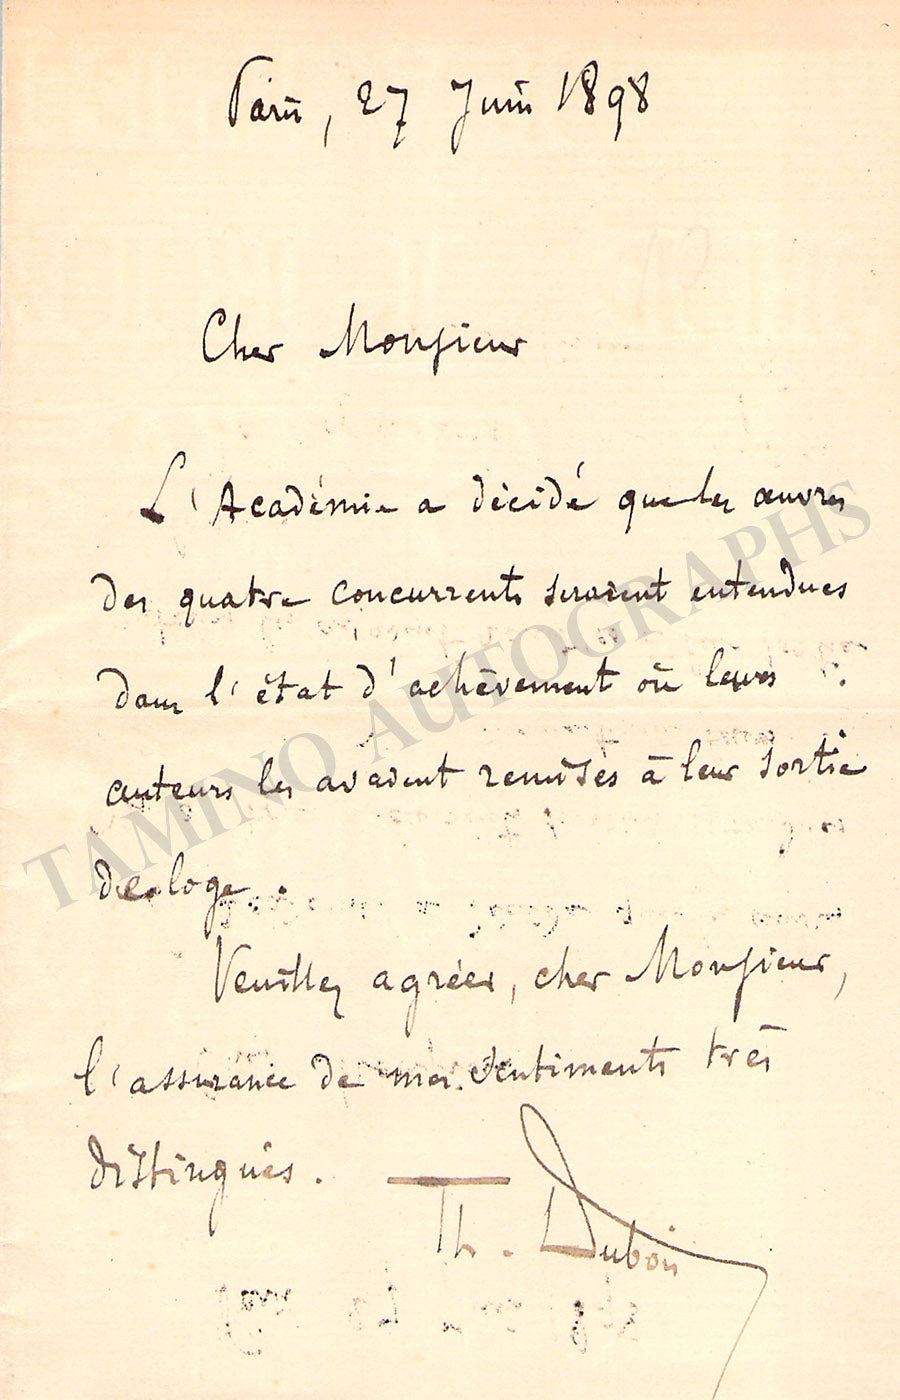 Paris, 27 Juin 1898
Cher Monsieur
L'Académie a décidé que les œuvres
des quatre concurrents seraient entendues
dans l'état d'achèvement où leurs
auteurs les avaient remises à leur sortie
de loge.
Veuillez agréer, cher Monsieur,
l'assurance de mes sentiments très
distingués.
Th. Dubois
TAMINO AUTOGRAPHS